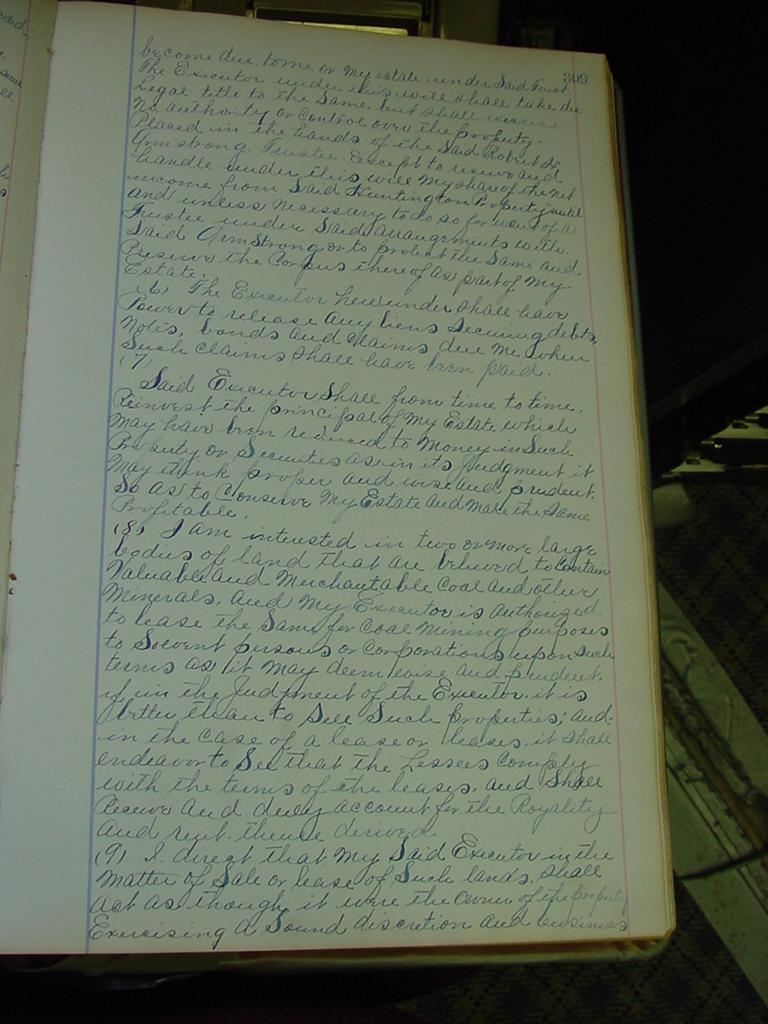 309
become due to me or my estate under Said Trust
The Executor under this will shall take the
Legal title to the Same but shall exercise
No authority or Control over the property
Placed in the hands of the Said Robert
Armstrong, Trustee. Except to receive and
handle under this will my share of the net
income from Said Huntington Property until
and unless necessary to do so for want of a
Trustee under Said arrangements with
Said Armstrong or to protect the Same and
Preserve the Corpus thereof as part of my
Estate.
6) The Executor hereunder shall have
Power to release any liens Securing debts,
Notes, bonds and Claims due me when
Such Claims shall have been paid.
(7)
Said Executor Shall from time to time.
Reinvest the principal of My Estate which
May have been reduced to Money in Such
Property or Securities as in its Judgment it
May think proper and wise and prudent.
So as to Conserve My Estate and Make the Same
Profitable.
(8) I am interested in two or more large
bodies of land that are believed to Contain
Valuable and Merchantable Coal and other
Minerals, and My Executor is authorized
to lease the Same for Coal Mining purposes
to Solvent persons or Corporations upon Such
terms as it May deem wise and prudent.
if in the Judgment of the Executor it is
better than to Sell Such properties; and
in the Case of a lease or leases, it Shall
endeavor to See that the Lessees Comply
with the terms of the leases, and Shall
Receive And duly account for the Royality
And rent. thense derived
(9) I direct that My Said Executor in the
Matter of Sale or lease of Such lands, Shall
Act as though it were the Owner of the property
Exercising a Sound discretion and business